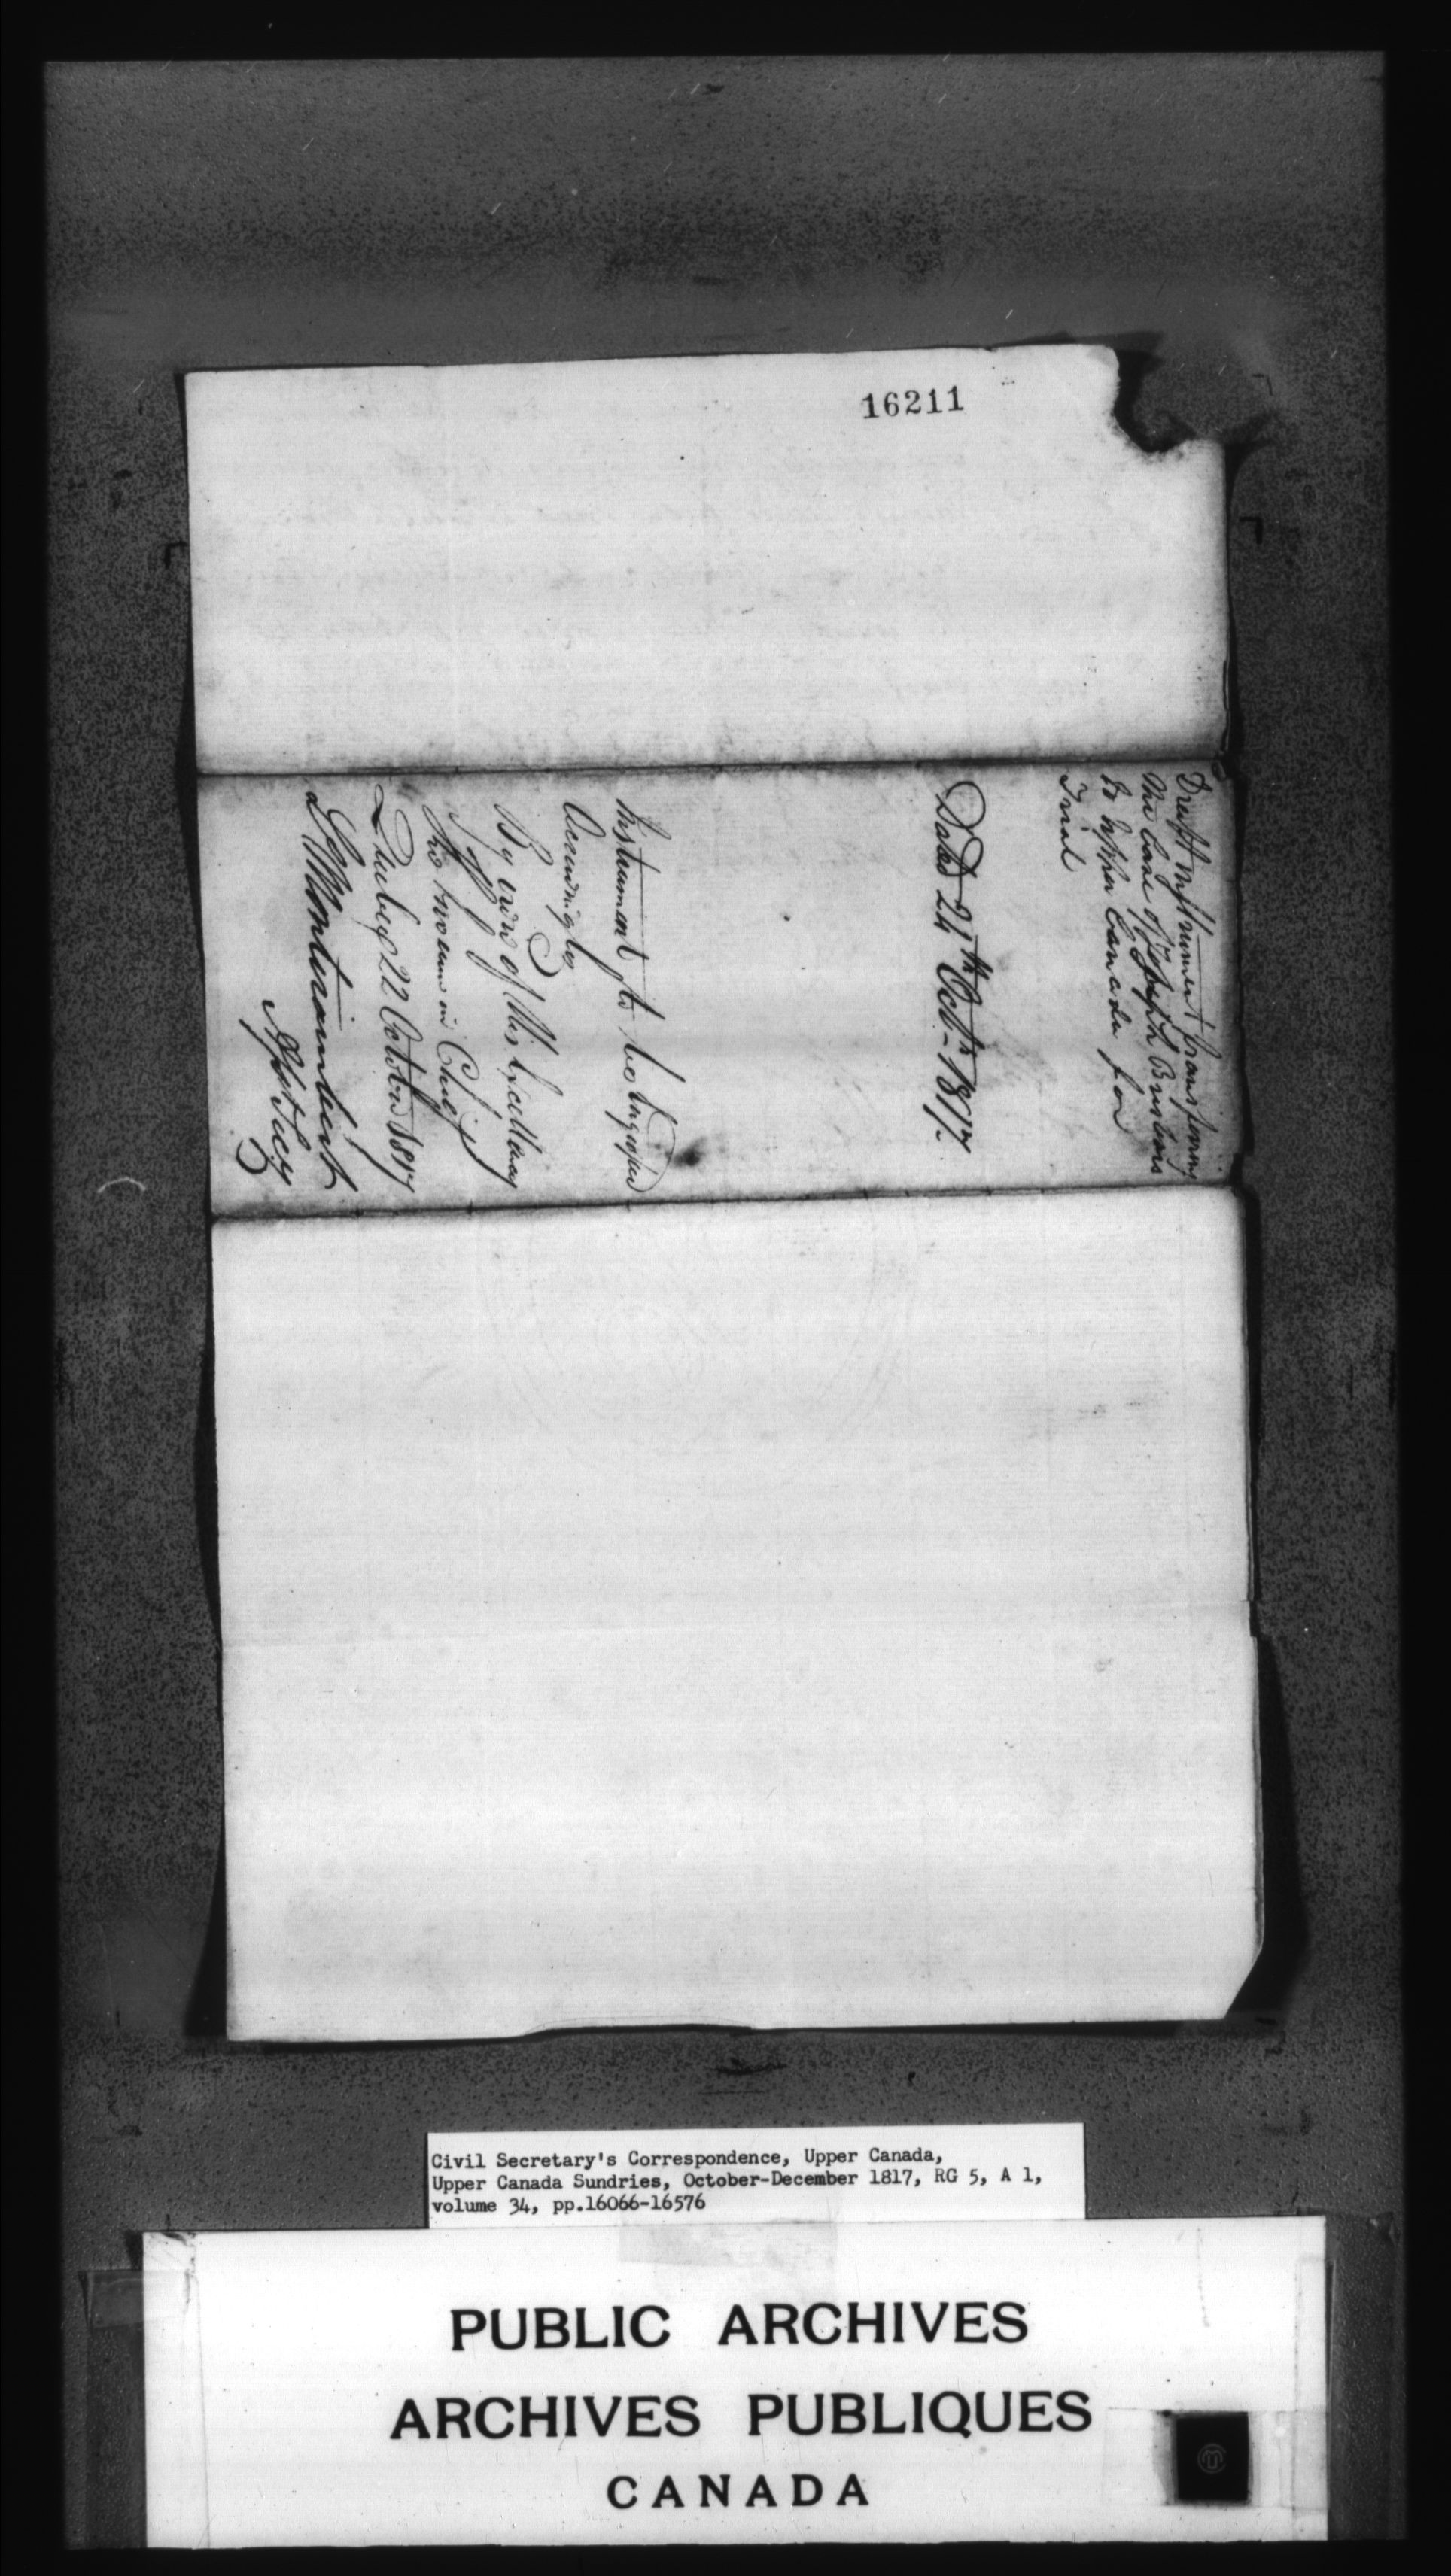 16211
Draft Instrument transferring
the Case of Joseph Brisbois
to Upper Canada for
Trial
Dated 24th Octr 1817.
Instrument to be Engrossed
Accordingly
By order of His Excellency
The Governor in Chief
Quebec 22 October 1817
L Montizambert
Asst Secy
Civil Secretary's Correspondence, Upper Canada,
Upper Canada Sundries, October-December 1817, RG 5, A 1,
volume 34, pp.16066-16576
PUBLIC ARCHIVES
ARCHIVES PUBLIQUES
CANADA